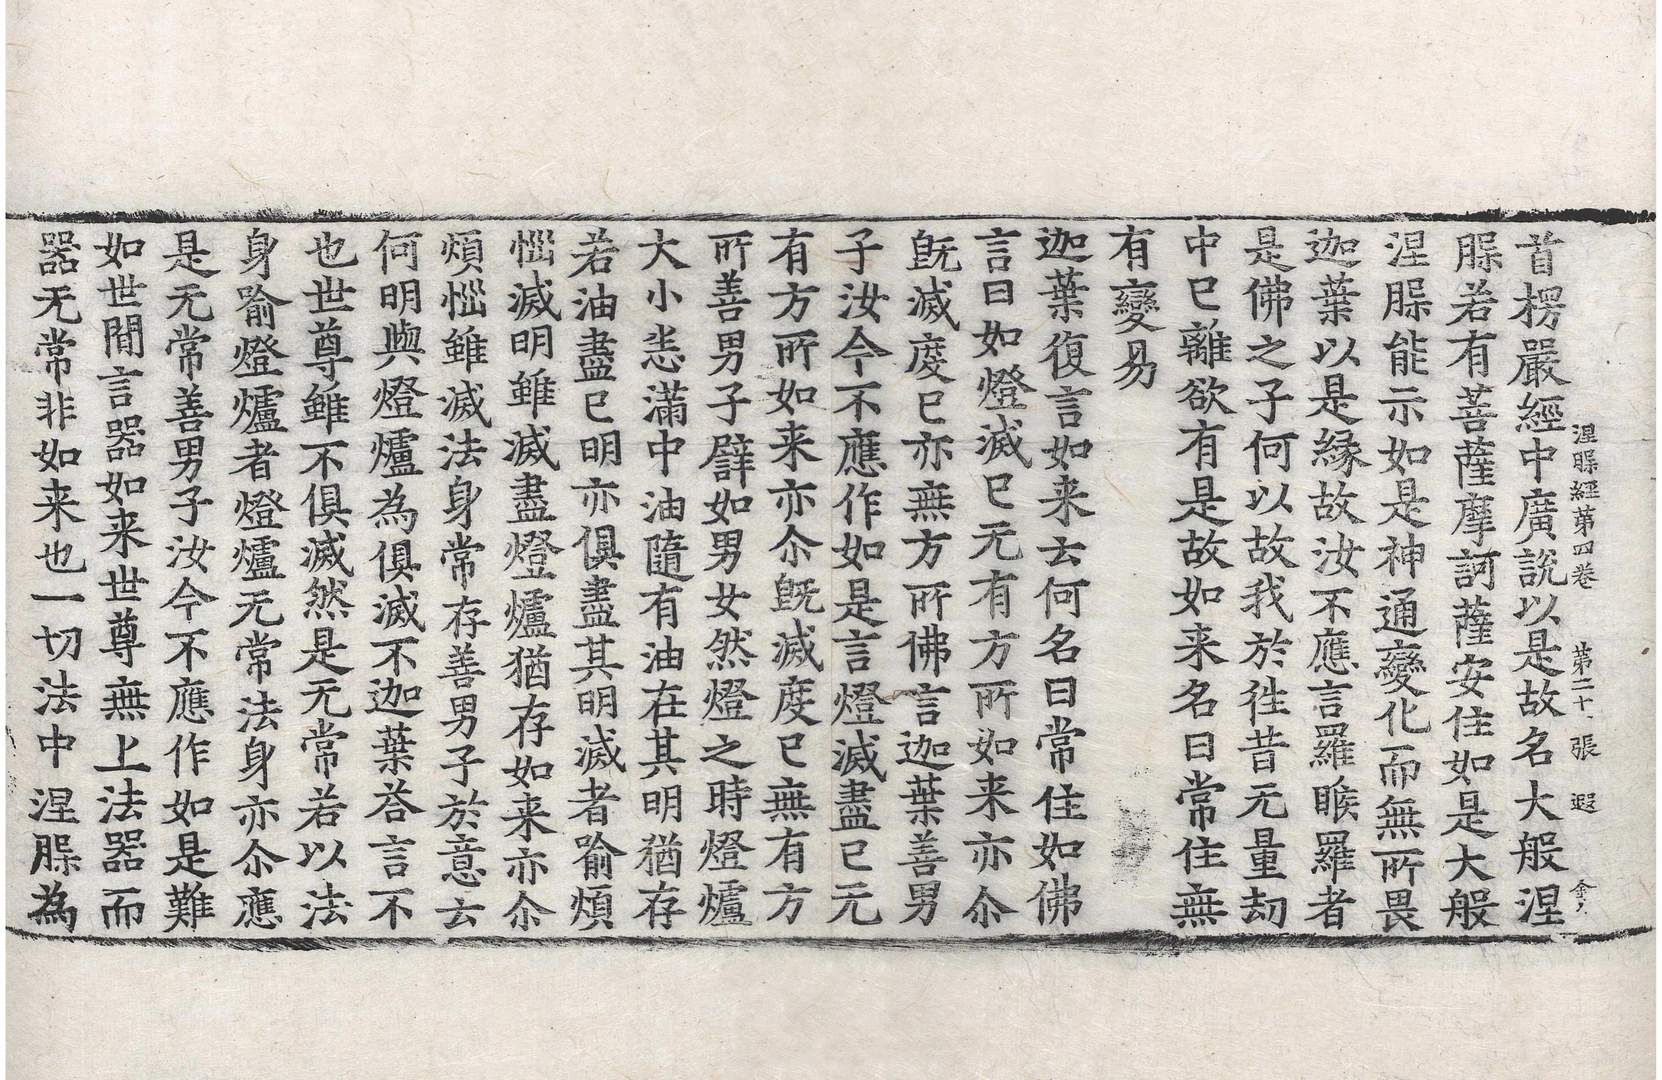 涅槃經第四卷 第二十張 遐 金大
首楞嚴經中廣說以是故名大般涅
槃若有菩薩摩訶薩安住如是大般
涅槃能示如是神通變化而無所畏
迦葉以是緣故汝不應言羅睺羅者
是佛之子何以故我於往昔无量劫
中已離欲有是故如来名曰常住無
有變易
迦葉復言如来云何名曰常住如佛
言曰如燈滅已无有方所如来亦尒
旣滅度已亦無方所佛言迦葉善男
子汝今不應作如是言燈滅盡已无
有方所如来亦尒旣滅度已無有方
所善男子譬如男女然燈之時燈爐
大小悉滿中油隨有油在其明猶存
若油盡已明亦俱盡其明滅者喻煩
惱滅明雖滅盡燈爐猶存如来亦尒
煩惱雖滅法身常存善男子於意云
何明與燈爐為俱滅不迦葉荅言不
也世尊雖不俱滅然是无常若以法
身喻燈爐者燈爐无常法身亦尒應
是无常善男子汝今不應作如是難
如世間言器如来世尊無上法器而
器无常非如来也一切法中涅槃為